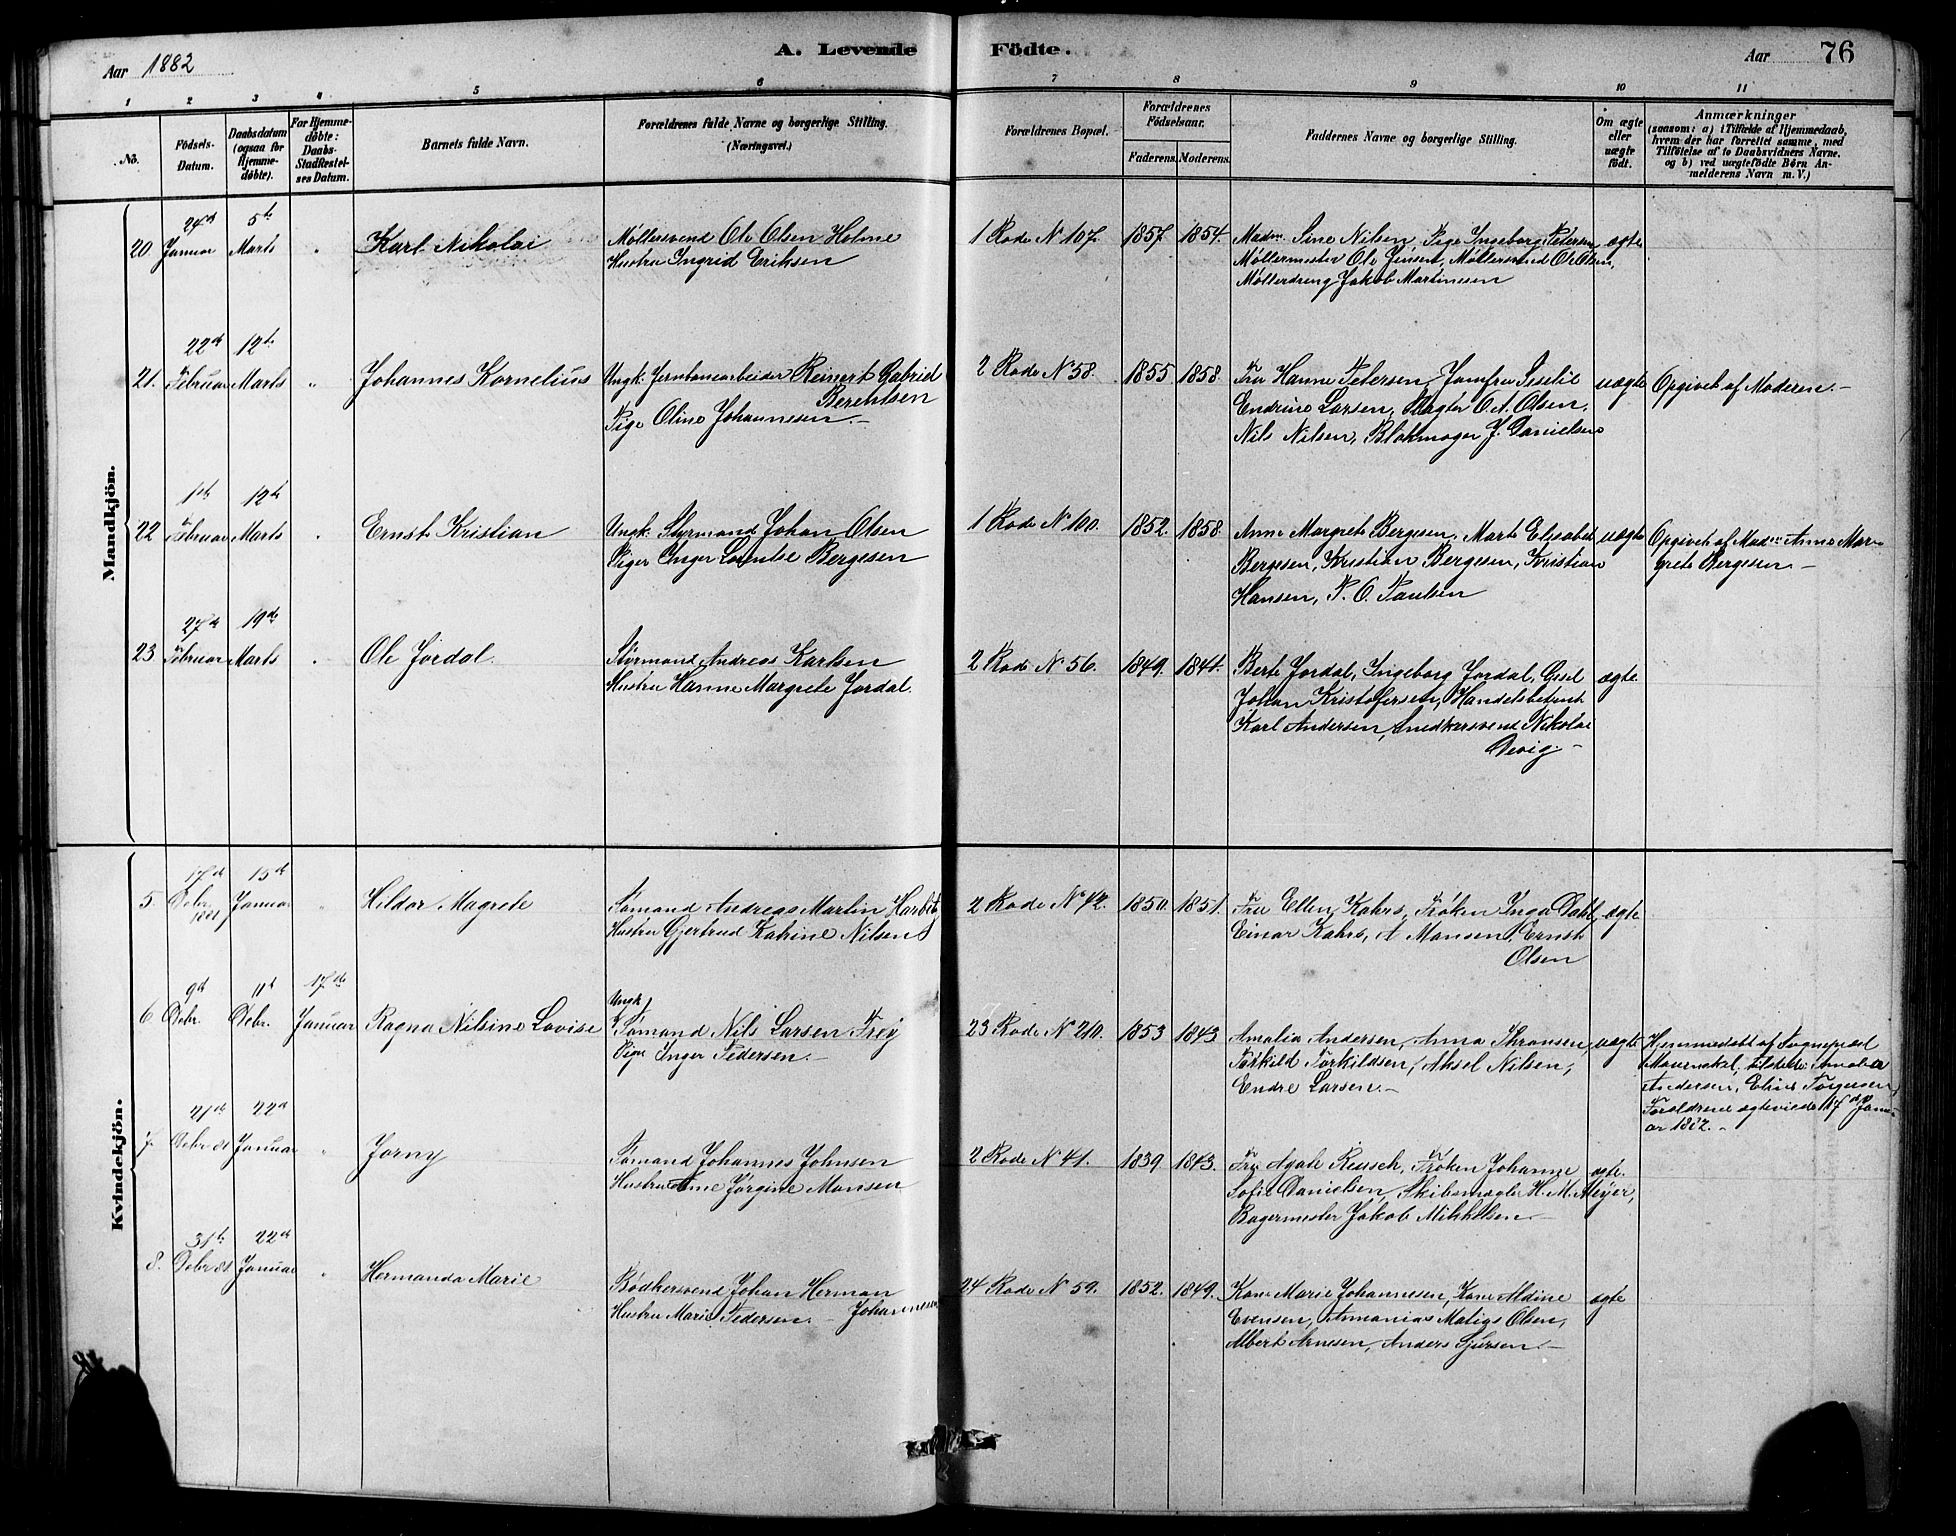 Aar 1882
A. Levende Födte.
Aar 76
1 2 3 4 5 6 7 8 9 10 11
No.
Födsels-Datum.
Daabsdatum (ogsaa for Hjemme-döbte).
For Hjemme-döbte: Daabs-Stadfæstel-ses Datum.
Barnets fulde Navn.
Forældrenes fulde Navne og borgerlige Stilling. (Næringsvei.)
Forældrenes Bopæl.
Forældrenes Födselsaar.
Faderens. Moderens.
Faddernes Navne og borgerlige Stilling.
Om ægte eller uægte födt.
Anmærkninger
(saasom: a) i Tilfælde af Hjemmedaab,
hvem der har forrettet samme, med
Tilföielse af to Daabsvidners Navne.
og b) ved uægtefödte Börn An-
melderens Navn m. V.)
Mandkjön.
20 24de Januar 5te Marts " Karl Nikolai
Møllersvend Ole Olsen Holme
Hustru Ingrid Eriksen
1 Rode N 107. 1857. 1854.
Madm. Sine Nilsen, Pige Ingeborg Petersen
Møllermester Ole Jensen, Møllersvend Ole Olsen,
Møllerdreng Jakob Martinesen
ægte
21. 22de Februar 12te Marts " Johannes Kornelius
Ungk. Jernbanearbeider Reinert Gabriel
Berentsen
Pige Oline Johannesen.-
2 Rode No 58. 1855 1858.
Fru Hanne Petersen, Jomfru Sesilie
Endrine Larsen, Slagter O. A. Olsen,
Nils Nilsen, Blokmager J. Danielsen
uægte
Opgivet af Moderen.-
22 1te Februar 12te Marts " Ernst Kristian
Ungk. Styrmand Johan Olsen
Piger Inger Lorentse Bergesen
1 Rode N 100. 1852. 1858.
Anne Margrete Bergesen, Marte Elisabet
Bergesen, Kristian Bergesen, Kristian
Hansen, P. O. Paulsen
uægte
Opgivet af Madm Anne Mar-
grete Bergesen.-
23 27de Februar 19de Marts " Ole Jordal.
Styrmand Andreas Karlsen
Hustru Hanne Margrete Jordal.
2 Rode N 56. 1849. 1841.
Berte Jordal, Ingeborg Jordal,
Johan Kristofersen, Handelsbetjent
Karl Andersen, Snedkersvend Nikolai
ægte
Kvindekjön.
5. 17de Debr. 1881 15de Januar " Hildor Magrete
Sømand Andreas Martin
Hustru Gjertrud Katrine Nilsen
2 Rode No 42. 1850. 1851.
Fru Ellen Kahrs, Frøken Inga Dahl,
Einar Kahrs, A Monsen, Ernst
Olsen
ægte
6 9d Debr. 11t Debr. 17de Januar Ragna Nilsine Lovise
Ungk.
Sømand Nils Larsen Frøy
Pige Inger Pedersen.-
23 Rode N 210. 1853 1843
Amalia Andersen, Anna Thronsen,
Torkild Torkildsen, Aksel Nilsen,
Endre Larsen.-
uægte
Hjemmedøbt af Sogneprest
tilstede: Amalia
Andersen, Eline Torgersen
Forældrene ægteviede 17de Janu-
ar 1882.-
7. 21de Debr 81 22de Januar " Jorny
Sømand Johannes Johnsen
Hustru Ane Jørgine Monsen
2 Rode N 41. 1839 1843.
Fru Agate Reusch, Frøken Johanne
Sofie Danielsen, Skibsmægler H. M. Meyer,
Bagermester Jakob Mikkelsen.-
ægte.
8. 31te Debr 81 22de Januar " Hermanda Marie
Bødkersvend Johan Herman
Johannesen
Hustru Marie Pedersen.-
24 Rode N 59. 1852. 1849.
Kone Marie Johannesen, Kone Aldine
Evensen, Ananias Matias Olsen,
Albert Arnesen, Anders Sjursen.-
ægte